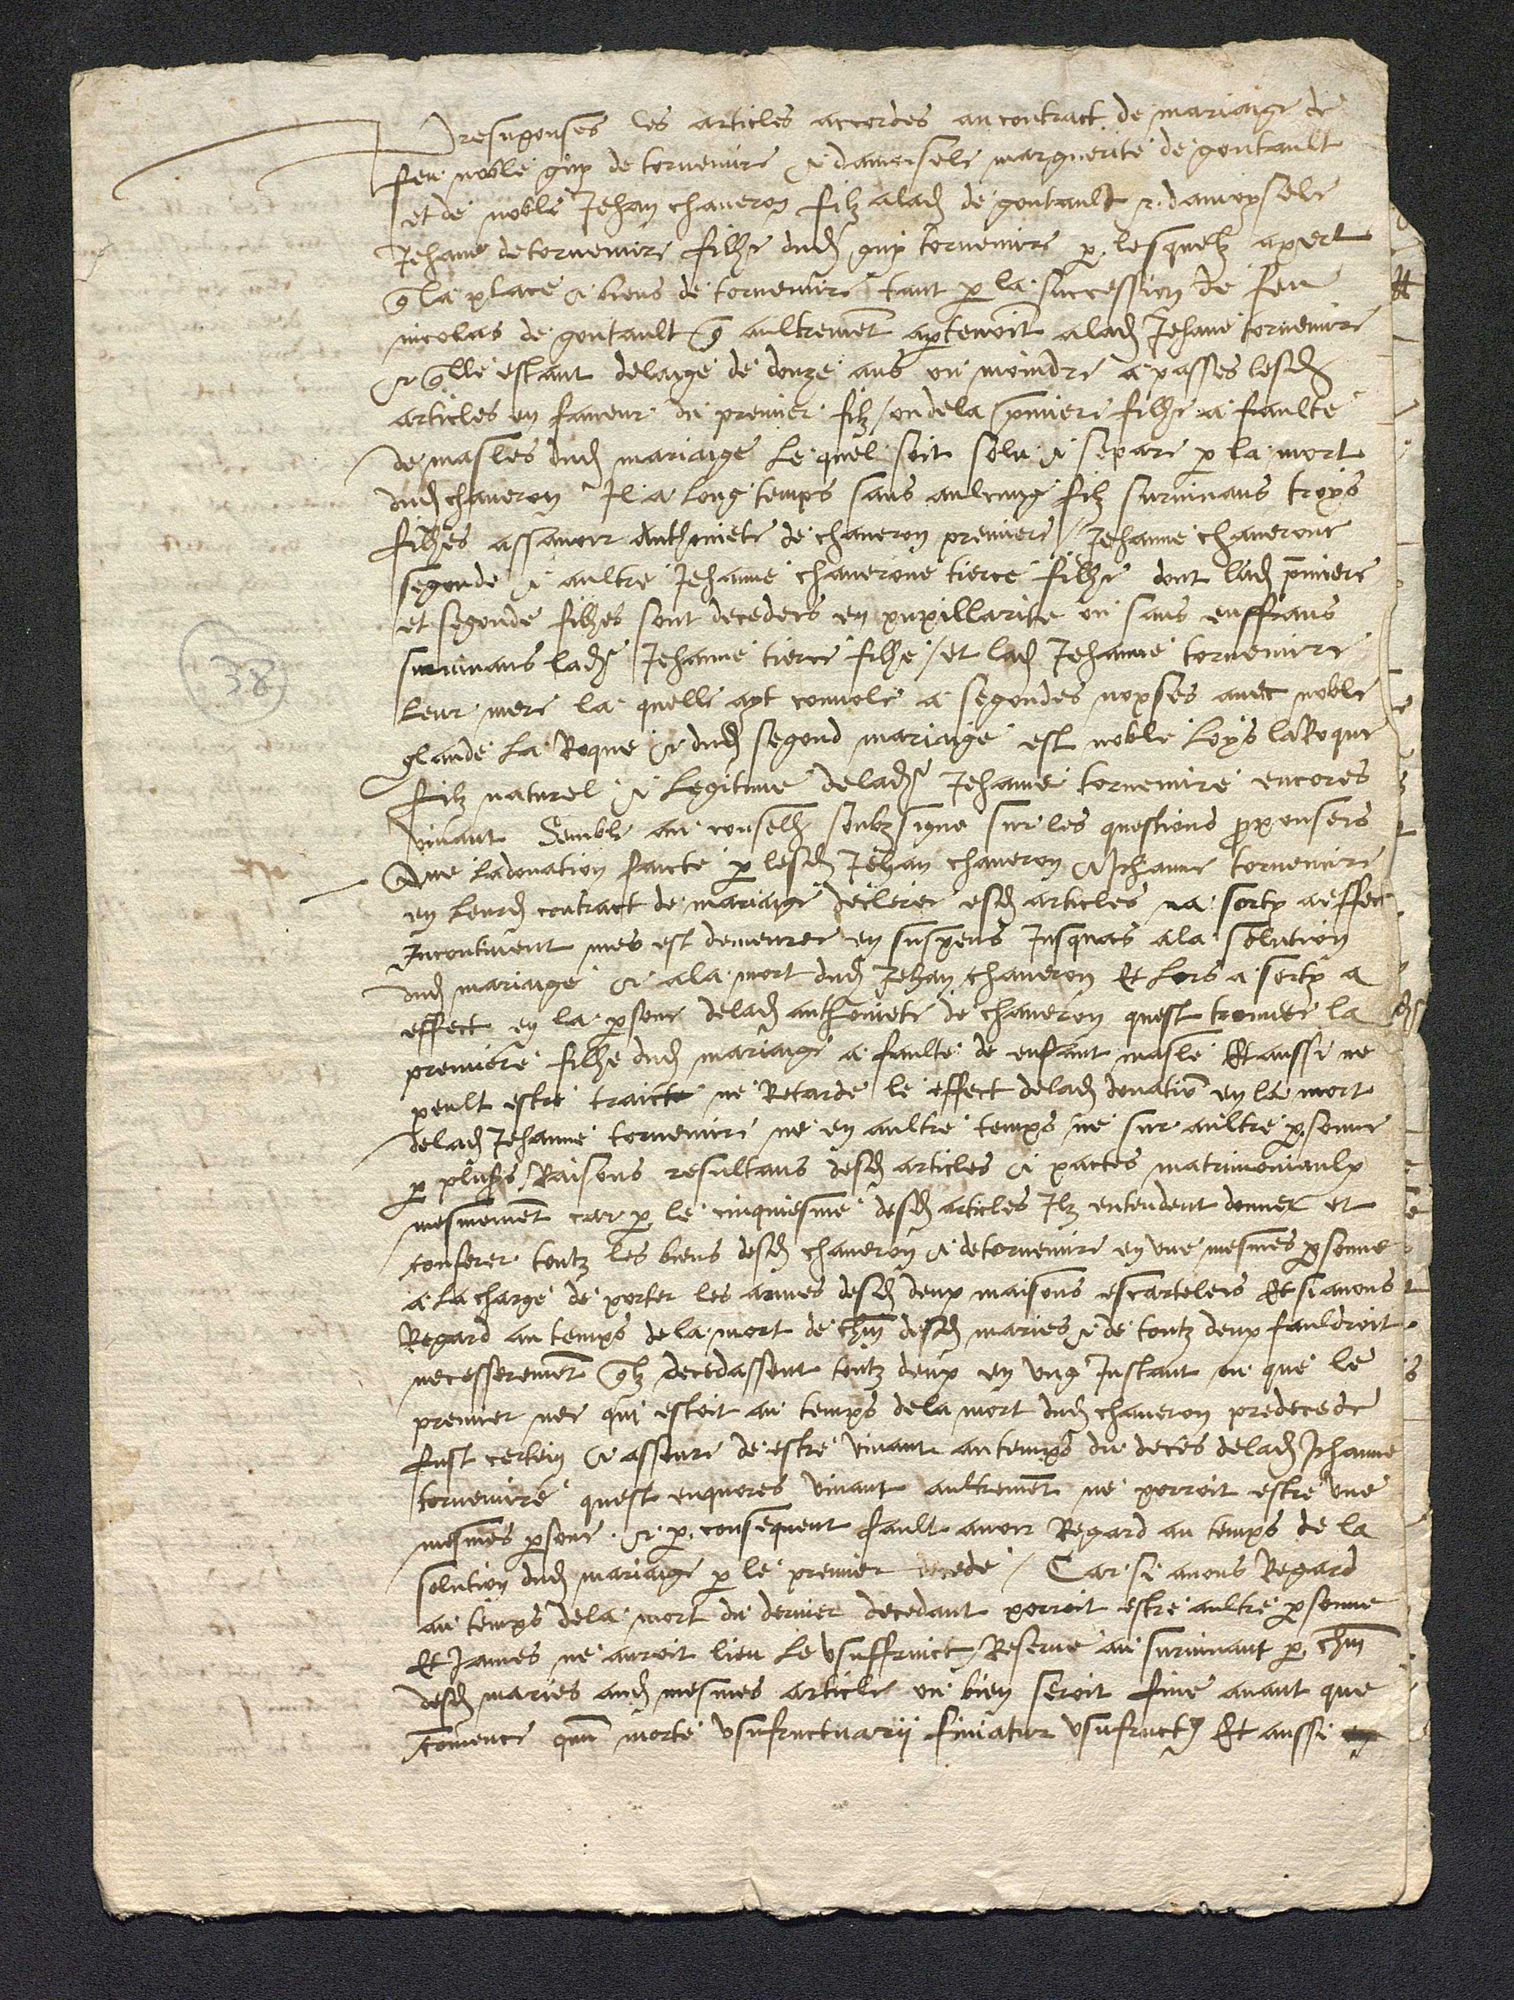 Presuponses les articles accordes au contract de mariaige de
feu noble guy de tornemire & damoisele marguerite de gontault
et de noble Jehan chaveron filz a lad de gontault & damoysele
Jehane de tornemire filhe dud guy tornemire p lesquelz apert
q la place & biens de tornemire tant p la succession de feu
nicolas de gontault q aultremet apertenoit a lad Jehane tornemire
& qlle estant de laige de douze ans ou moindre a passes lesd
articles en faveur du premier filz / ou de la pmiere filhe a faulte
de masles dud mariaige le quel soit solu & separe p la mort
dud chaveron Il a long temps sans aulcung filz survivans troys
filhes assavoir Anthoniete de chaveron premiere / Jehanne chaverone
segonde & aultre Jehanne chaverone tierce filhe dont lad pmiere
et segonde filhes sont decedees en pupillarite ou sans enffans
survivans lad Jehanne tierce filhe / et lad Jehanne tornemire
leur mere la quelle ayt convole a segondes nopses avec noble
glaude La Roque & dud segond mariaige est noble Loys laRoque
filz naturel & legitime de lad Jehanne tornemire encores
vivant Semble au conselh soubzsigne sur les questions proponsees
Que la donation faicte p lesd Jehan chaveron & Jehanne tornemire
en leurd contract de mariaige decleree esd articles na sorty a effec
Incontinent mes est demeuree en suspens Jusques a la solution
dud mariaige & a la mort dud Jehan chaveron Et lors a sorty a
effect en la psone de lad anthoniete de chaveron quest trouvee la
premiere filhe dud mariaige a faulte de enfant masle Et aussi ne
peult estre traicte ne Retarde le effect de lad donatio en la mort
de lad Jehanne tornemire ne en aultre temps ne sur aultre psonne
p plusrs Raisons resultans desd articles & pactes matrimoniaulx
mesmement car p le cinquiesme desd articles Ilz entendent donner et
conferer toutz les biens desd chaveron & de tornemire en une mesmes psonne
a la charge de porter les armes desd deux maisons escartelees Et si avons
Regard au temps de la mort de chm desd maries & de toutz deux fauldroit
necesserement qlz decedassent toutz deux en ung Instant ou que le
premier nee qui estoit au temps de la mort dud chaveron predecede
fust certein & asseure de estre vivant au temps du deces de lad Jehanne
tornemire quest enquores vivant aultrement ne porroit estre une
mesmes psone & p consequent fault avoir Regard au temps de la
solution dud mariaige p le premier decede / Car si avons Regard
au temps de la mort du dernier decedant porroit estre aultre psonne
Et James ne auroit lieu le usuffruict Reserve au survivant p chm
desd maries aud mesmes article ou bien seroit fine avant que
comence quu morte usufructuarii finiatur usufruct9 Et aussi
38